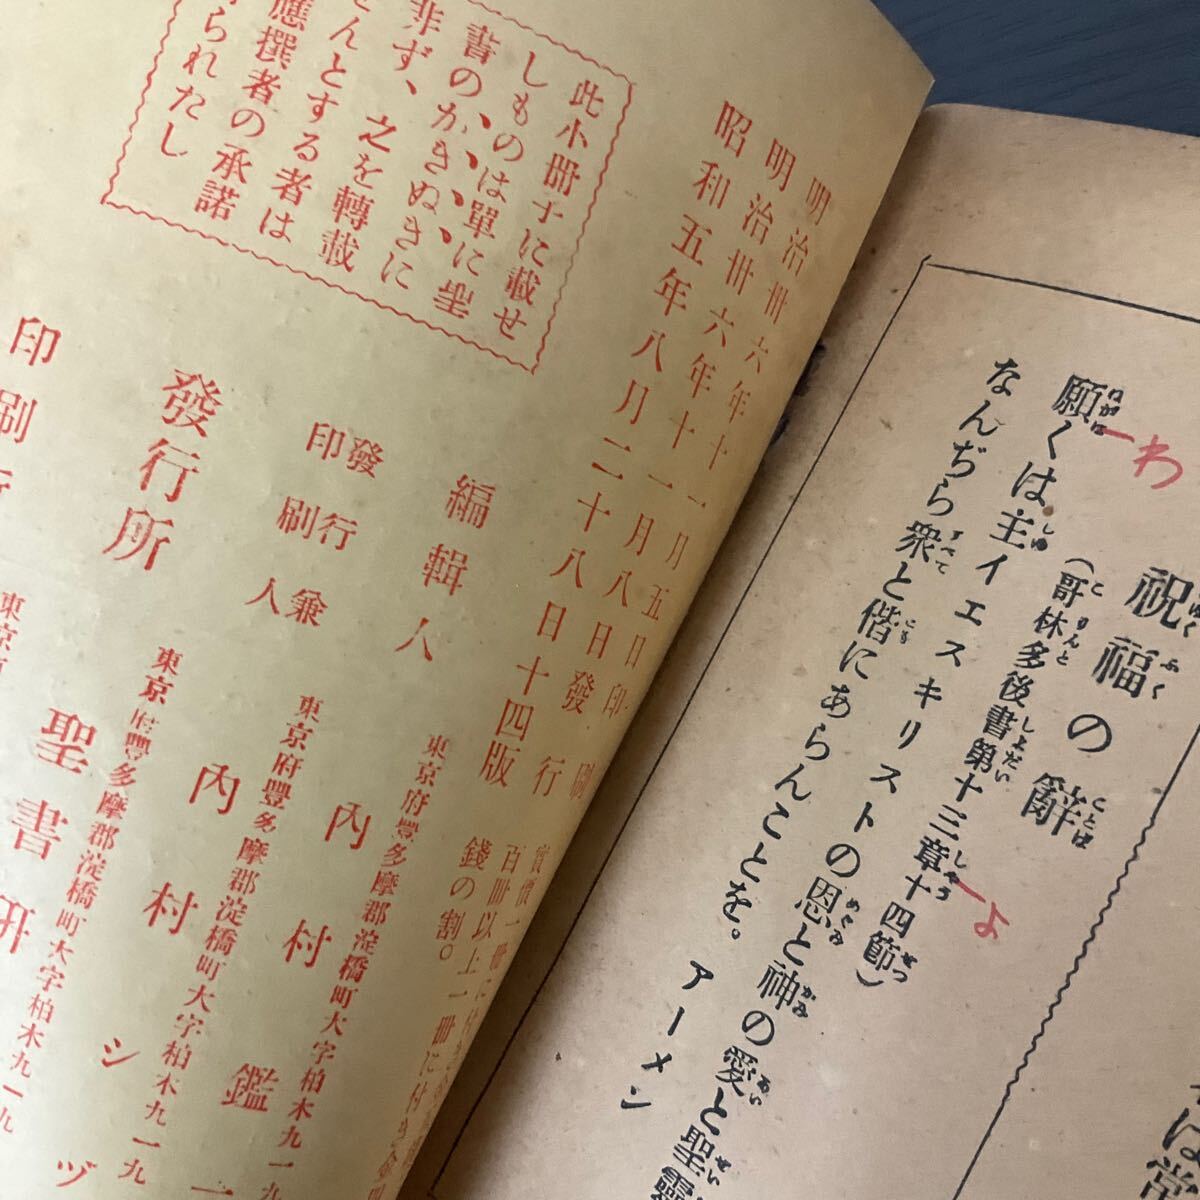 祝福の辭
(哥林多後書第十三章十四節)
願くは主イエスキリストの恩と神の愛と聖靈
なんぢら衆と偕にあらんことを。アーメン
わ
よ
は堂
明治卅六年十一月五日印刷
明治卅六年十一月八日發行
昭和五年八月二十八日十四版
百冊以上
錢の割。
此小冊子に載せ
しものは單に聖
書のかきぬきに
非ず、之を轉載
せんとする者は
應撰者の承諾
られたし
東京府豐多摩郡淀橋町大字柏木九一九
編輯人 內村鑑
東京府豐多摩郡淀橋町大字柏木九一九
發行兼
印刷人 內村シヅ
東京府豐多摩郡淀橋町大字柏木九一九
發行所 聖書研
東京
印刷